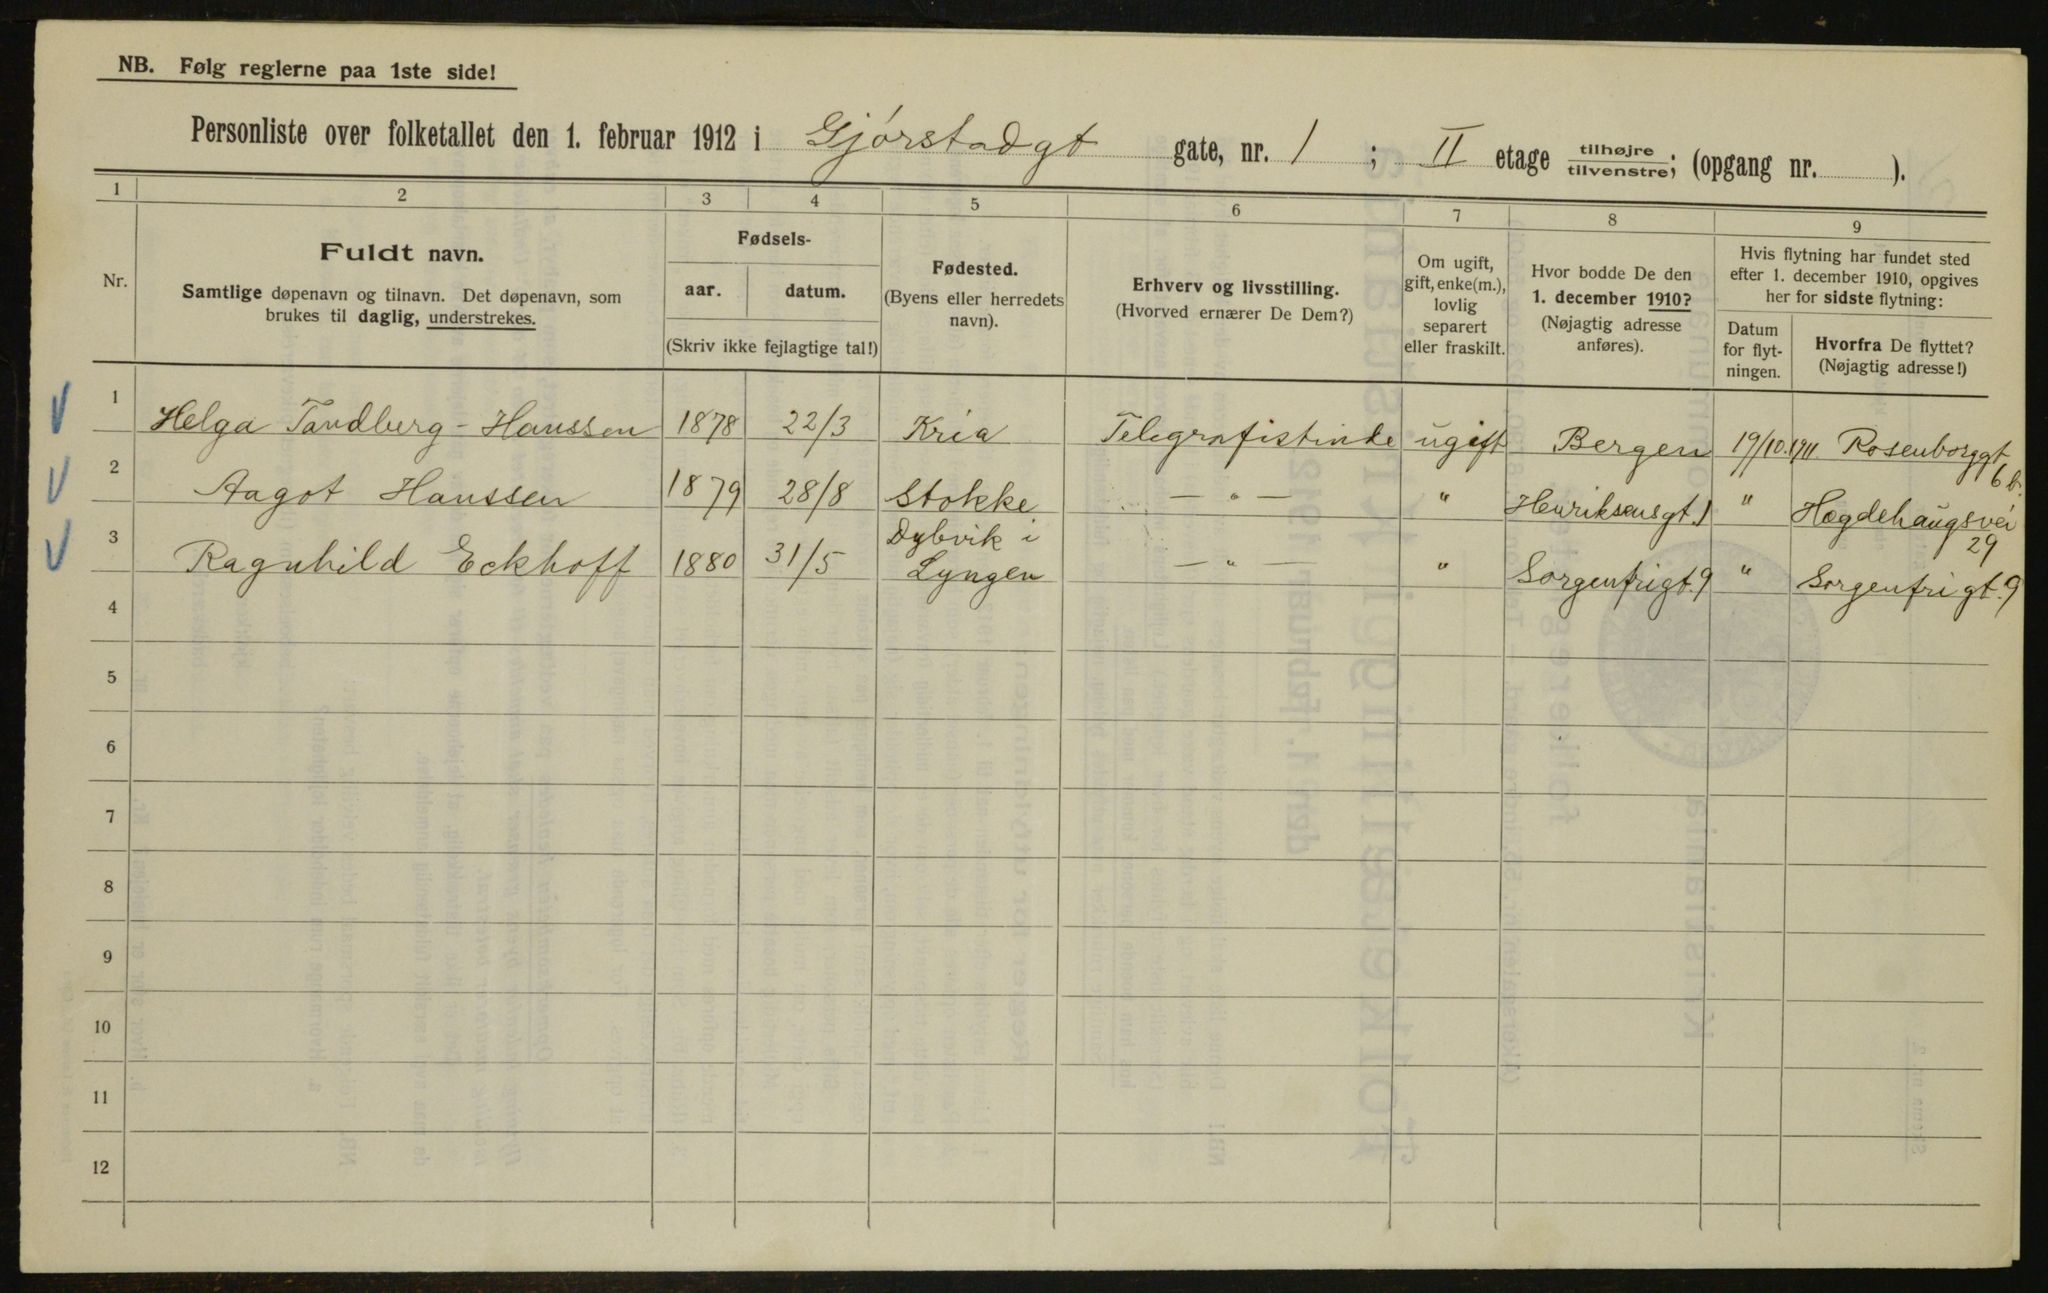 NB. Følg reglerne paa 1ste side!
Personliste over folketallet den 1. februar 1912 i Gjørstadgt gate, nr. 1 ; II etage tilhøjre/tilvenstre; (opgang nr. ).
1 2 3 4 5 6 7 8 9
Nr.
Fuldt navn.
Samtlige døpenavn og tilnavn. Det døpenavn, som
brukes til daglig, understrekes.
Fødsels-
aar. datum.
(Skriv ikke fejlagtige tal!)
Fødested.
(Byens eller herredets
navn).
Erhverv og livsstilling.
(Hvorved ernærer De Dem?)
Om ugift,
gift, enke(m.),
lovlig
separert
eller fraskilt.
Hvor bodde De den
1. december 1910?
(Nøjagtig adresse
anføres).
Hvis flytning har fundet sted
efter 1. december 1910, opgives
her for sidste flytning:
Datum
for flyt-
ningen.
Hvorfra De flyttet?
(Nøjagtig adresse!)
1 Helga Tandberg-Hanssen 1878 22/3 Kria Telegrafistinde ugift Bergen 19/10.1911 Rosenborggt
6b.
2 Aagot Hanssen 1879 28/8 Stokke — " — " Henriksensgt. 1 " Hægdehaugsvei
29
3 Ragnhild Eckhoff 1880 31/5 Dybvik i
Lyngen — " — " Sorgenfrigt. 9 " Sorgenfrigt. 9
4
5
6
7
8
9
10
11
12